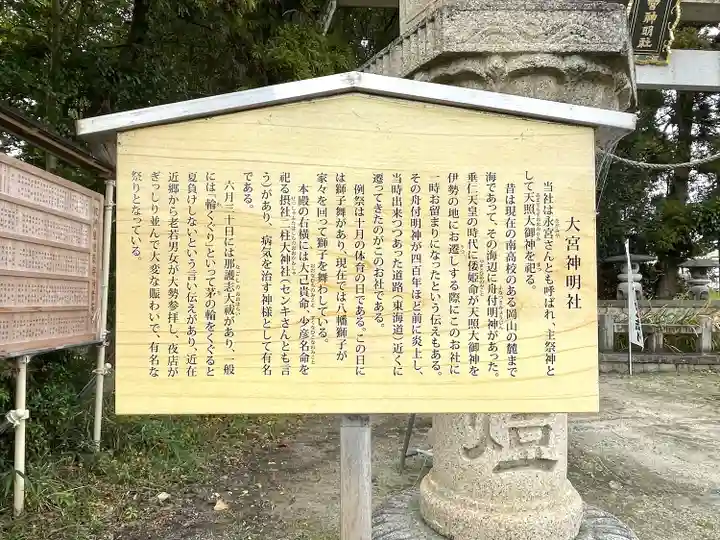 大宮神明社
当社は永宮さんとも呼ばれ、主祭神と
して天照大御神を祀る。
昔は現在の南高校のある岡山の麓まで
海であって、その海辺に舟付明神があった。
垂仁天皇の時代に倭姫命が天照大御神を
伊勢の地にお遷しする際にこのお社に
一時お留まりになったという伝えもある。
その舟付明神が四百年ほど前に炎上し、
当時出来つつあった道路（東海道）近くに
遷ってきたのがこのお社である。
例祭は十月の体育の日である。この日に
は獅子舞があり、現在では八幡獅子が
家々を回って獅子を舞わしている。
本殿の右横には大己貴命・少彦名命を
祀る摂社二柱大神社（センキさんとも言
う）があり、病気を治す神様として有名
である。
六月三十日には那護志大祓があり、一般
には「輪くぐり」といって茅の輪をくぐると
夏負けしないという言い伝えがあり、近在
近郷から老若男女が大勢参拝し、夜店が
ぎっしり並んで大変な賑わいで、有名な
祭りとなっている。
宮神明社